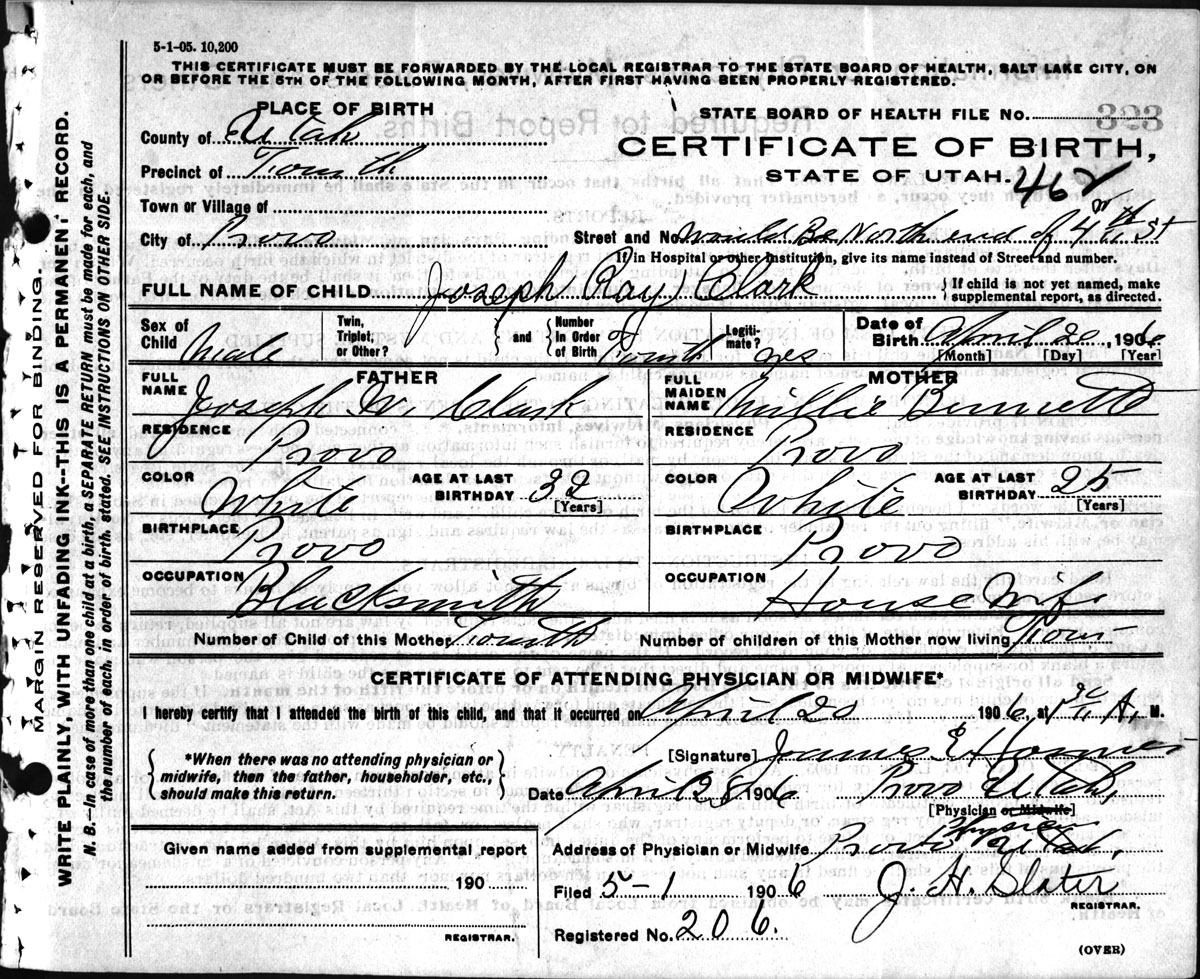 5-1-05. 10,200
THIS CERTIFICATE MUST BE FORWARDED BY THE LOCAL REGISTRAR TO THE STATE BOARD OF HEALTH, SALT LAKE CITY, ON
OR BEFORE THE 5TH OF THE FOLLOWING MONTH, AFTER FIRST HAVING BEEN PROPERLY REGISTERED.
PLACE OF BIRTH
STATE BOARD OF HEALTH FILE No.
323
County of Utah
CERTIFICATE OF BIRTH,
Precinct of Fourth
STATE OF UTAH.
462
Town or Village of
City of Provo
Street and No. would Be North end of 4th St
If in Hospital or other Institution, give its name instead of Street and number.
FULL NAME OF CHILD Joseph Ray Clark
{ If child is not yet named, make
supplemental report, as directed.
Sex of Child Male
Twin, Triplet, or Other? } and { Number in Order of Birth Fourth
Legiti-mate? yes
Date of Birth April 20 1906
[Month] [Day] [Year]
FATHER
FULL NAME Joseph W. Clark
MOTHER
FULL MAIDEN NAME Millie Bennett
RESIDENCE Provo
RESIDENCE Provo
COLOR White
AGE AT LAST BIRTHDAY 32 [Years]
COLOR White
AGE AT LAST BIRTHDAY 25 [Years]
BIRTHPLACE Provo
BIRTHPLACE Provo
OCCUPATION Blacksmith
OCCUPATION House Wife
Number of Child of this Mother Fourth
Number of children of this Mother now living Four
CERTIFICATE OF ATTENDING PHYSICIAN OR MIDWIFE*
I hereby certify that I attended the birth of this child, and that it occurred on April 20 1906, at A. M.
{ *When there was no attending physician or
midwife, then the father, householder, etc.,
should make this return. }
[Signature] James E
Date April 28 1906 Provo Utah,
[Physician or Midwife]
Physician
Address of Physician or Midwife Provo Utah,
Given name added from supplemental report
190
REGISTRAR.
Filed 5-1 1906 J. H. Slater
REGISTRAR.
Registered No. 206.
(OVER)
MARGIN RESERVED FOR BINDING.
WRITE PLAINLY, WITH UNFADING INK--THIS IS A PERMANENT RECORD.
N. B.—In case of more than one child at a birth, a SEPARATE RETURN must be made for each, and
the number of each, in order of birth, stated. SEE INSTRUCTIONS ON OTHER SIDE.